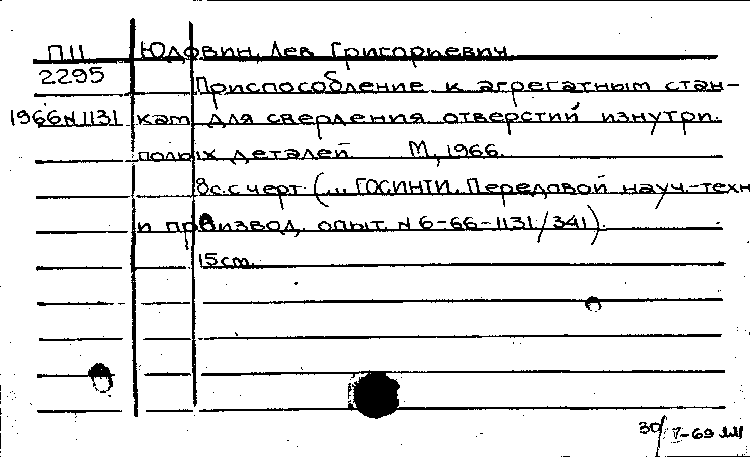 П11 Юдовин, Лев Григорьевич.
2295 Приспособление к агрегатным стан-
1966 N 1131 кам для сверления отверстий изнутри
полых деталей. М., 1966.
8с. с черт. (... ГОСИНТИ. Передовой науч.-техн
и производ. опыт. N 6-66-1131/341).
15 см.
30/ 7-69